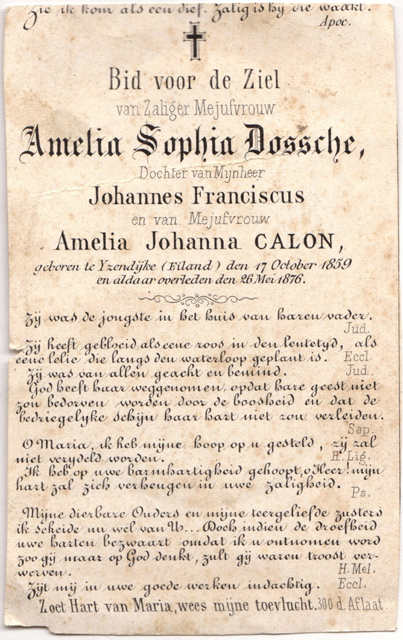 Zie ik kom als een dief. Zalig is hy die waakt.
Apoc.
Bid voor de Ziel
van Zaliger Mejufvrouw
Amelia Sophia Dossche,
Dochter van Mynheer
Johannes Franciscus
en van Mejufvrouw
Amelia Johanna CALON,
geboren te Yzendijke (Eiland) den 17 October 1859
en aldaar overleden den 26 Mei 1876.
Zij was de jongste in het huis van haren vader.
Jud.
Zij heeft gebloeid als eene roos in den lentetyd, als
eene lelie die langs den waterloop geplant is. Eccl.
Zij was van allen geacht en bemind. Jud.
God heeft haar weggenomen, opdat hare geest niet
zou bedorven worden door de boosheid en dat de
bedriegelyke schijn haar hart niet zou verleiden.
Sap.
O Maria, ik heb mijne hoop op u gesteld, zij zal
niet verydeld worden. H. Lig.
Ik heb op uwe barmhartigheid gehoopt, o Heer! mijn
hart zal zich verheugen in uwe zaligheid.
Ps.
Mijne dierbare Ouders en mijne teergeliefde zusters
ik scheide nu wel van U... Doch indien de droefheid
uwe harten bezwaart omdat ik u ontnomen word
zoo gij maar op God denkt, zult gij waren troost ver-
werven. H. Mel.
Zijt mij in uwe goede werken indachtig. Eccl.
Zoet Hart van Maria, wees mijne toevlucht. 300 d. Aflaat